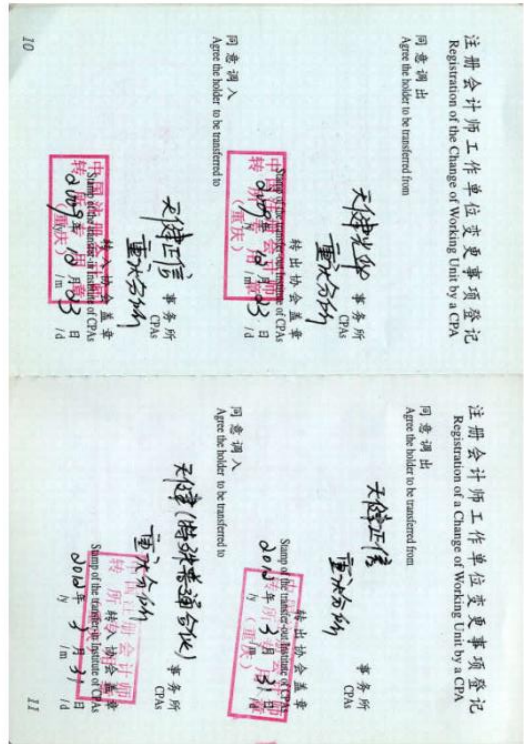 注册会计师工作单位变更事项登记
Registration of the Change of Working Unit by a CPA
同意调出
Agree the holder to be transferred from
天健光华
重庆分所
事务所
CPAs
转出协会盖章
Stamp of the transfer-out Institute of CPAs
2009年10月23日
/y /m /d
中国注册会计师
转所专用章
（重庆）
同意调入
Agree the holder to be transferred to
天健正信
重庆分所
事务所
CPAs
转入协会盖章
Stamp of the transfer-in Institute of CPAs
2009年10月23日
/y /m /d
中国注册会计师
转所专用章
（重庆）
10
注册会计师工作单位变更事项登记
Registration of a Change of Working Unit by a CPA
同意调出
Agree the holder to be transferred from
天健正信
重庆分所
事务所
CPAs
转出协会盖章
Stamp of the transfer-out Institute of CPAs
2012年3月31日
/y /m /d
（重庆）
同意调入
Agree the holder to be transferred to
天健(特殊普通合伙)
重庆分所
事务所
CPAs
转入协会盖章
Stamp of the transfer-in Institute of CPAs
2012年3月31日
/y /m /d
中国注册会计师
11